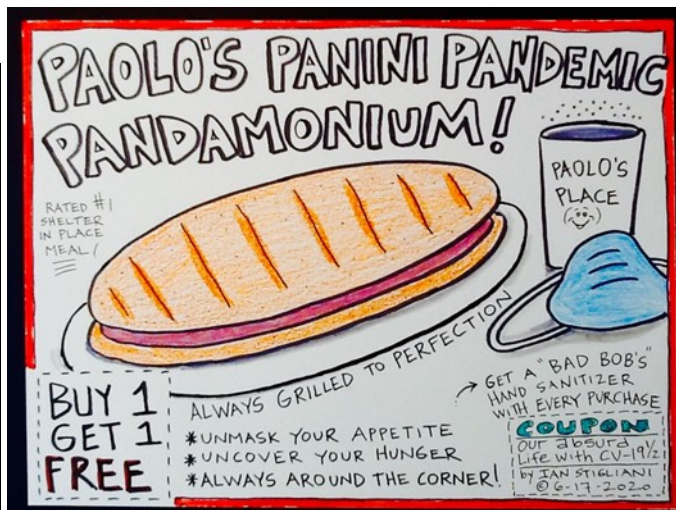 PAOLO'S PANINI PANDEMIC
PANDAMONIUM!
RATED #1
SHELTER
IN PLACE
MEAL!
PAOLO'S
PLACE
ALWAYS GRILLED TO PERFECTION
BUY 1
GET 1
FREE
*UNMASK YOUR APPETITE
*UNCOVER YOUR HUNGER
*ALWAYS AROUND THE CORNER!
GET A "BAD BOB'S"
HAND SANITIZER
WITH EVERY PURCHASE
COUPON
Our absurd
Life with CV-19½
by IAN STIGLIANI
© 6-17-2020